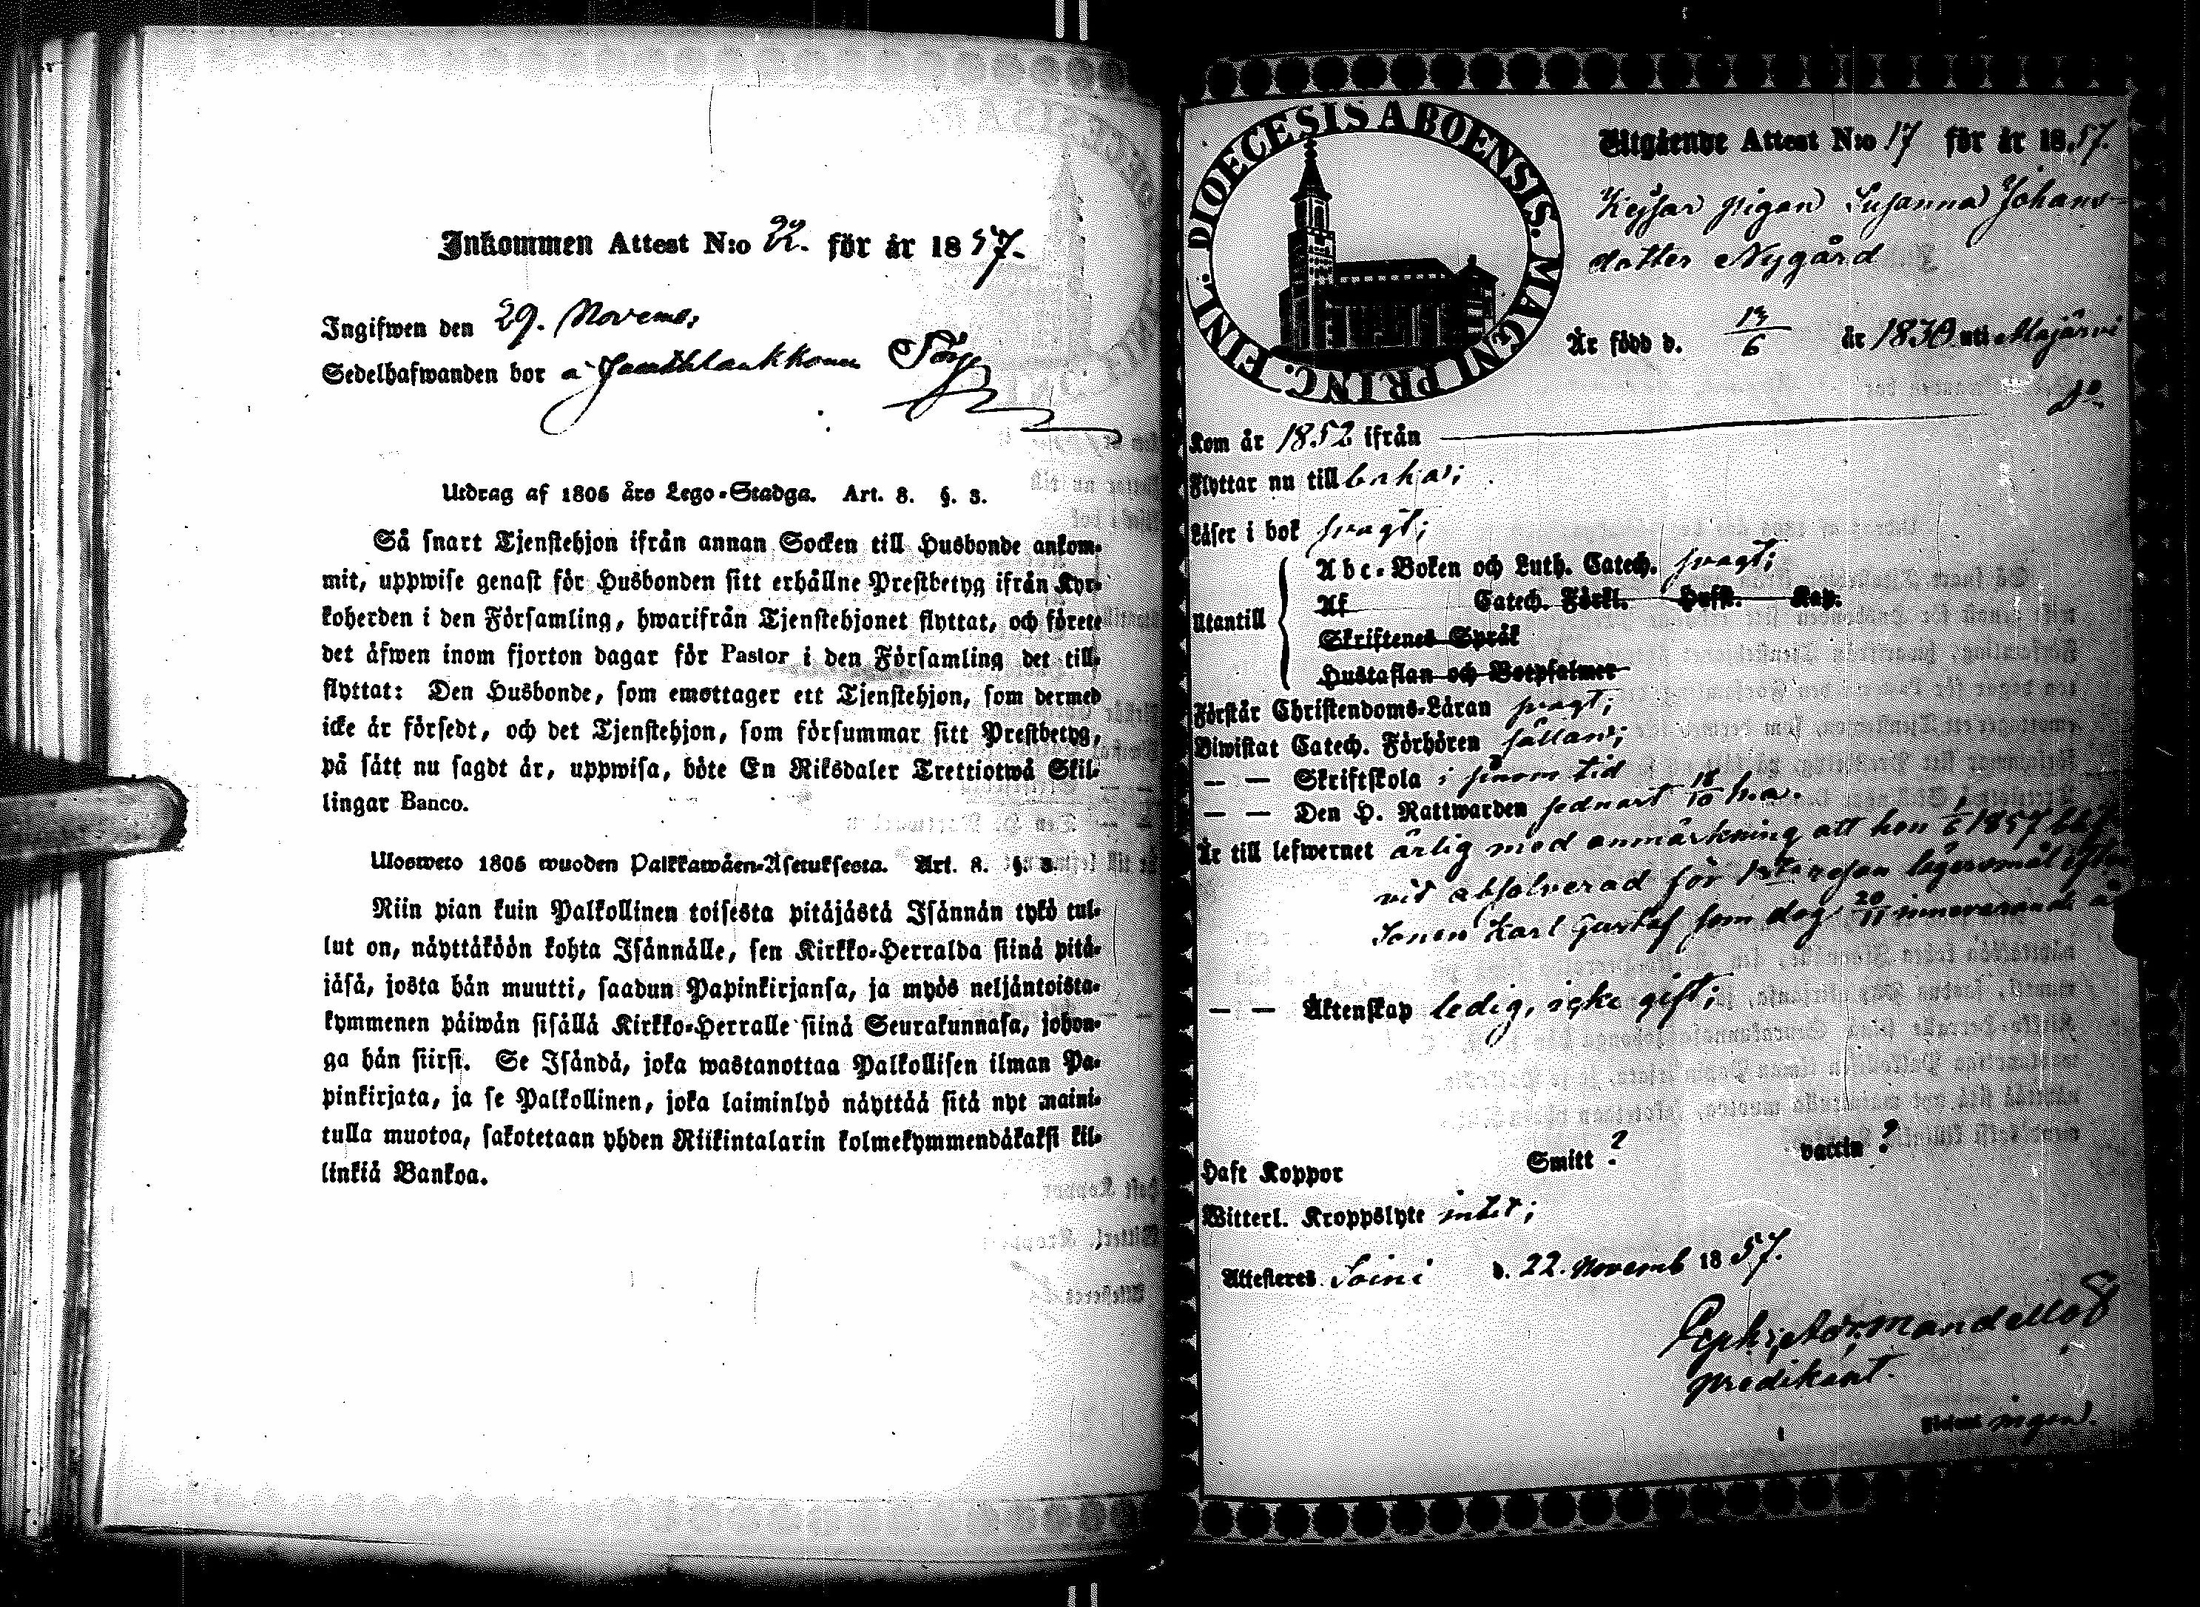 Inkommen Attest N:o 22. för år 1857.
Ingifwen den 29. Novemb;
Sedelhafwanden bor å
Utdrag af 1805 års Lego-Stadga. Art. 8. §. 3.
Så snart Tjenstehjon ifrån annan Socken till Husbonde ankom-
mit, uppwise genast för Husbonden sitt erhållne Prestbetyg ifrån Kyr-
koherden i den Församling, hwarifrån Tjenstehjonet flyttat, och förete
det åfwen inom fjorton dagar för Pastor i den Församling det till-
flyttat: Den Husbonde, som emottager ett Tjenstehjon, som dermed
icke är försedt, och det Tjenstehjon, som försummar sitt Prestbetyg,
på sätt nu sagdt är, uppwisa, böte En Riksdaler Trettiotwå Skil-
lingar Banco.
Ulosweto 1805 wuoden Palkkawäen-Asetuksesta. Art. 8. §. 3.
Niin pian kuin Palkollinen toisesta pitäjästä Isännän tykö tul-
lut on, näyttäköön kohta Isännälle, sen Kirkko-Herralda siinä pitä-
jäsä, josta hän muutti, saadun Papinkirjansa, ja myös neljäntoista-
kymmenen päiwän sisällä Kirkko-Herralle siinä Seurakunnasa, johon-
ga hän siirsi. Se Isändä, joka wastanottaa Palkollisen ilman Pa-
pinkirjata, ja se Palkollinen, joka laiminlyö näyttää sitä nyt maini-
tulla muotoa, sakotetaan yhden Riikintalarin kolmekymmendäkaksi kil-
linkiä Bankoa.
FINL. DIOECESIS ABOENSIS. MAGNI PRINC.
Utgående Attest N:o 17 för år 1857.
pigan Susanna Johans-
dotter Nygård
Är född d. 13/6 år 1830 uti Alajärvi
Kom år 1852 ifrån
Flyttar nu till baka;
Läser i bok svagt;
Utantill
Abc-Boken och Luth. Catech. svagt;
Af Catech. Förkl. Hufst. Kap.
Skriftenes Språk
Hustaflan och Botpsalmer
Förstår Christendoms-Läran svagt;
Biwistat Catech. Förhören sällan;
— — Skriftskola i sinom tid
— — Den H. Nattwarden sednast 18/10 h.a.
Är till lefwernet ärlig med anmärkning att hon 1/6 1857 blif-
vit absolverad för 1sta resan lägersmål efter
Sonen Karl Gustaf som dog 20/11 innevarande år
— — Äktenskap ledig, icke gift;
Haft Koppor Smitt ? vaccin ?
Witterl. Kroppslyte intet;
Attesteras Soini d. 22. Novemb 1857.
predikant.
ingen.